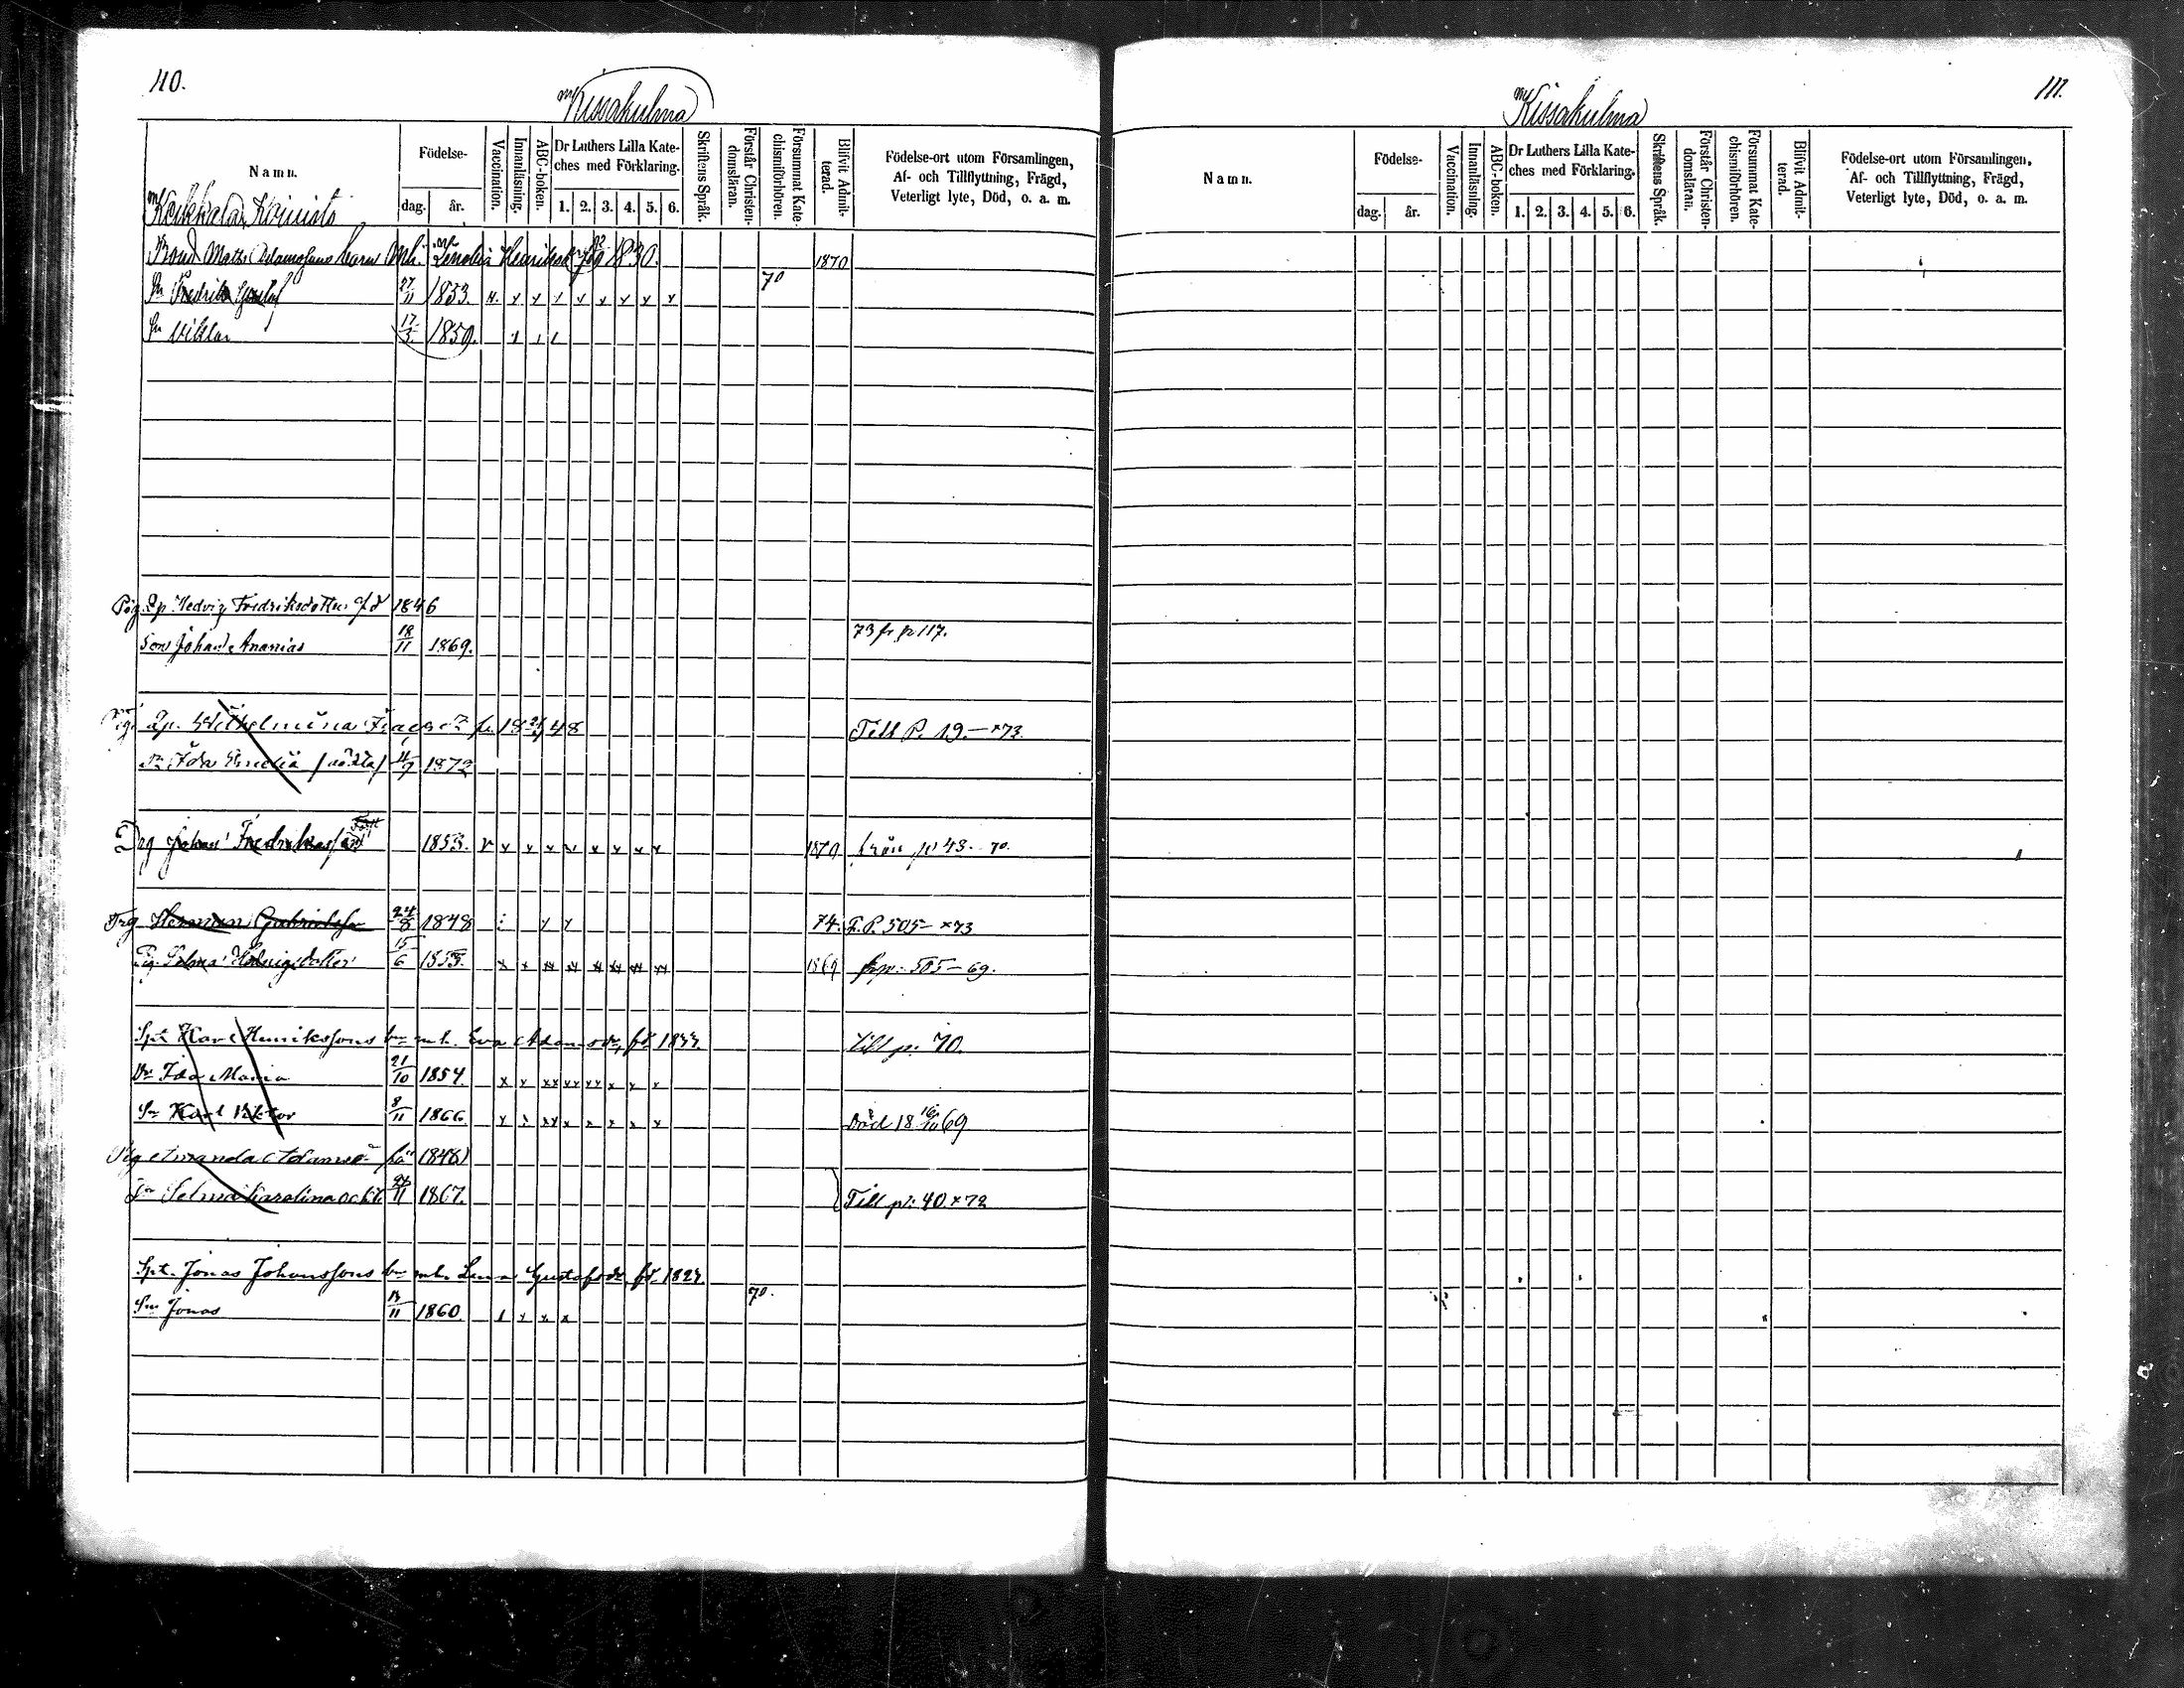 110.
Kissakulma
Namn.
Födelse-
dag. år.
Vaccination.
Innanläsning.
ABC-boken.
Dr Luthers Lilla Kate-
ches med Förklaring.
1. 2. 3. 4. 5. 6.
Skriftens Språk.
Förstår Christen-
domsläran.
Försummat Kate-
chismiförhören.
Blifvit Admit-
terad.
Födelse-ort utom Församlingen,
Af- och Tillflyttning, Frägd,
Veterligt lyte, Död, o. a. m.
Bond Matts Adamssons barn 1830. 1870
Sn Fredrik Gustaf 27/11 1853. 70
Sn Viktor 17/3 1859.
Pig. Hedvig Fredriksdotter fd 1846
Son Johan Ananias 18/11 1869. 73 fr p 117.
Wilhelmina 18 48 Till P. 19. - x73.
Ida 1872
Drg Johan Fredriksson 1853. 1870 från p 43. 70.
Drg Herman Gabrielsson 24/8 1848 74. T. P. 505- x73
Pig. Selma 15/6 1853. 1869 frp. 505 - 69.
Spt Karl Henrikssons bn mh. Eva Adamsdr, fd 18 till p. 70.
Dr Ida Maria 21/10 1854.
Sn Karl Viktor 8/11 1866. Död 18 69
Pig Amanda Adamsd 1848
Dr Selma Karolina 1867. Till p. 40. x 72
Spt. Jonas Johanssons bn mh. Lena Gustafsdr, fd. 182
Sn Jonas 13/11 1860 70.
111.
Kissakulma
Namn.
Födelse-
dag. år.
Vaccination.
Innanläsning.
ABC-boken.
Dr Luthers Lilla Kate-
ches med Förklaring.
1. 2. 3. 4. 5. 6.
Skriftens Språk.
Förstår Christen-
domsläran.
Försummat Kate-
chismiförhören.
Blifvit Admit-
terad.
Födelse-ort utom Församlingen,
Af- och Tillflyttning, Frägd,
Veterligt lyte, Död, o. a. m.